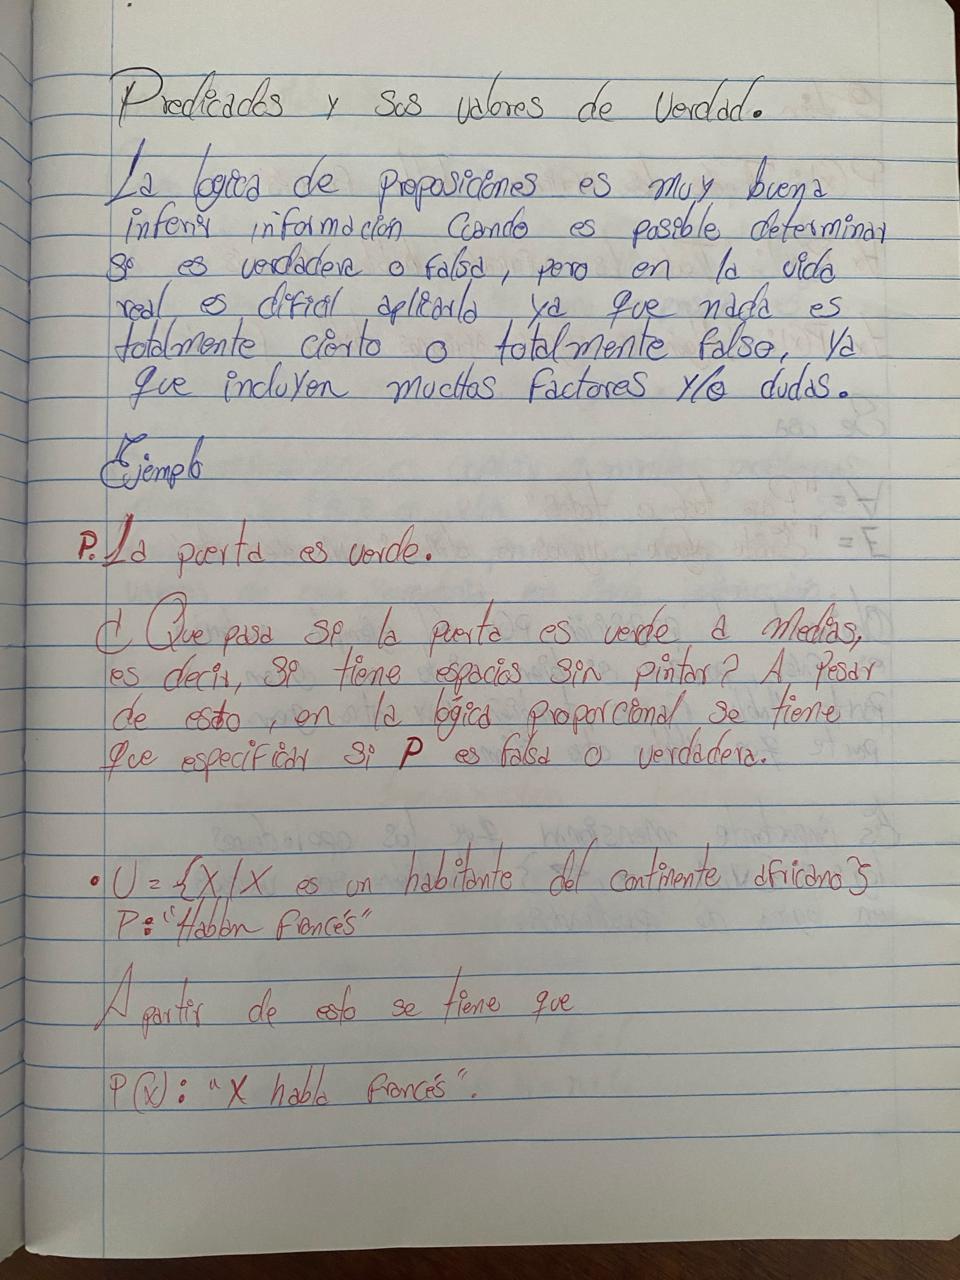 Predicados y sus valores de verdad.
La logica de proposiciones es muy buena
inferir informacion Cuando es posible determinar
si es verdadera o falsa, pero en la vida
real es dificil aplicarla ya que nada es
totalmente cierto o totalmente falso, ya
que incluyen muchos factores y/o dudas.
Ejemplo
P. La puerta es verde.
¿ Que pasa si la puerta es verde a medias,
es decir, si tiene espacios sin pintar? A pesar
de esto, en la lógica proporcional se tiene
que especificar si P es falsa o verdadera.
• U = {X/X es un habitante del continente africano}
P: "Hablan francés"
A partir de esto se tiene que
P(x): "X habla francés".